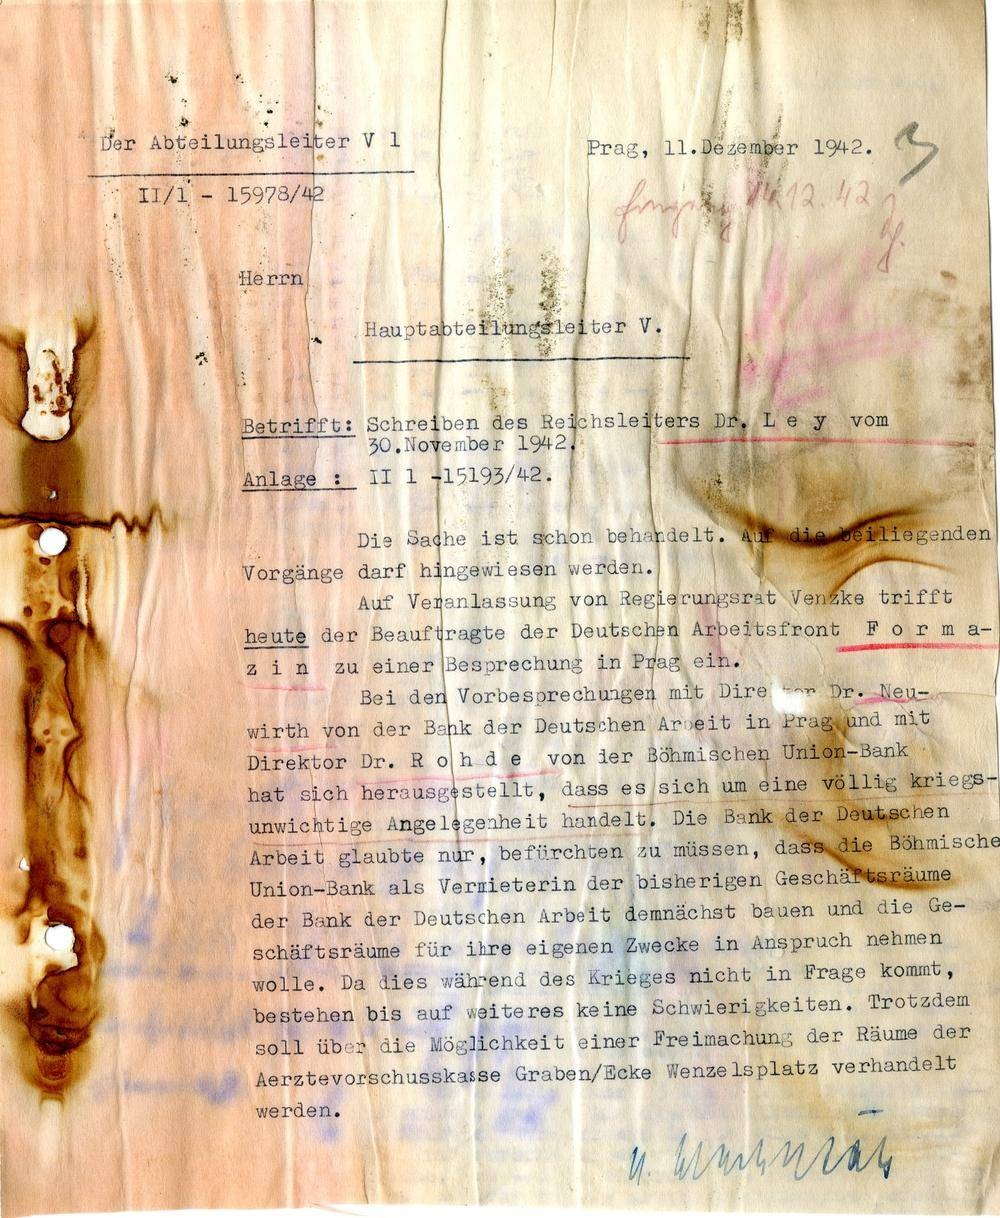 Der Abteilungsleiter V 1
Prag, 11.Dezember 1942.
II/1 - 15978/42
14.12.42
Herrn
Hauptabteilungsleiter V.
Betrifft: Schreiben des Reichsleiters Dr. L e y vom
30.November 1942.
Anlage : II 1 -15193/42.
Die Sache ist schon behandelt. Auf die beiliegenden
Vorgänge darf hingewiesen werden.
Auf Veranlassung von Regierungsrat Venzke trifft
heute der Beauftragte der Deutschen Arbeitsfront F o r m a-
z i n zu einer Besprechung in Prag ein.
Bei den Vorbesprechungen mit Direktor Dr. Neu-
wirth von der Bank der Deutschen Arbeit in Prag und mit
Direktor Dr. R o h d e von der Böhmischen Union-Bank
hat sich herausgestellt, dass es sich um eine völlig kriegs-
unwichtige Angelegenheit handelt. Die Bank der Deutschen
Arbeit glaubte nur, befürchten zu müssen, dass die Böhmische
Union-Bank als Vermieterin der bisherigen Geschäftsräume
der Bank der Deutschen Arbeit demnächst bauen und die Ge-
schäftsräume für ihre eigenen Zwecke in Anspruch nehmen
wolle. Da dies während des Krieges nicht in Frage kommt,
bestehen bis auf weiteres keine Schwierigkeiten. Trotzdem
soll über die Möglichkeit einer Freimachung der Räume der
Aerztevorschusskasse Graben/Ecke Wenzelsplatz verhandelt
werden.